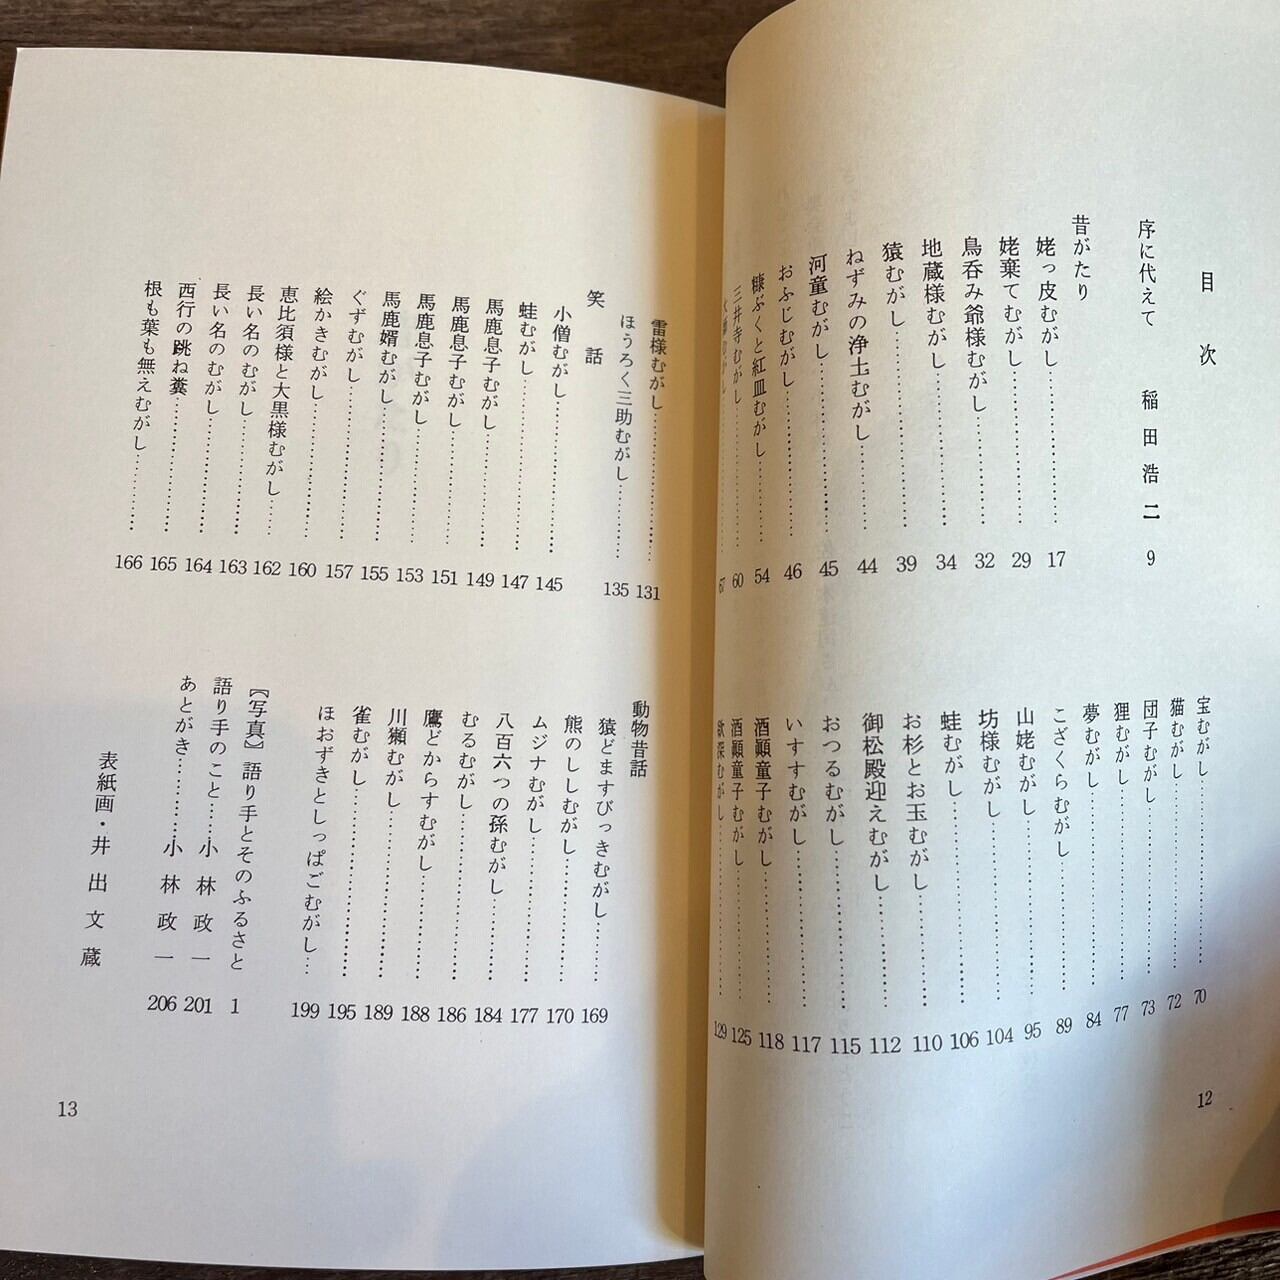 目次
序に代えて 稲田浩二 9
昔がたり
姥っ皮むがし………17
姥棄てむがし………29
鳥呑み爺様むがし………32
地蔵様むがし………34
猿むがし………39
ねずみの浄土むがし………44
河童むがし………45
おふじむがし………46
糠ぶくと紅皿むがし………54
三井寺むがし………60
67
宝むがし………70
猫むがし………72
団子むがし………73
狸むがし………77
夢むがし………84
こざくらむがし………89
山姥むがし………95
坊様むがし………104
蛙むがし………106
お杉とお玉むがし………110
御松殿迎えむがし………112
おつるむがし………115
いすすむがし………117
酒顚童子むがし………118
酒顚童子むがし………125
欲深むがし………129
12
雷様むがし………131
ほうろく三助むがし………135
笑話
小僧むがし………145
蛙むがし………147
馬鹿息子むがし………149
馬鹿息子むがし………151
馬鹿息子むがし………153
馬鹿婿むがし………155
ぐずむがし………157
絵かきむがし………160
恵比須様と大黒様むがし………162
長い名のむがし………163
長い名のむがし………164
西行の跳ね糞………165
根も葉も無えむがし………166
動物昔話
猿どますびっきむがし………169
熊のししむがし………170
ムジナむがし………177
八百六つの孫むがし………184
むるむがし………186
鷹どからすむがし………188
川獺むがし………189
雀むがし………195
ほおずきとしっぱごむがし…199
〘写真〙語り手とそのふるさと 1
語り手のこと……小林政一 201
あとがき………小林政一 206
表紙画・井出文蔵
13